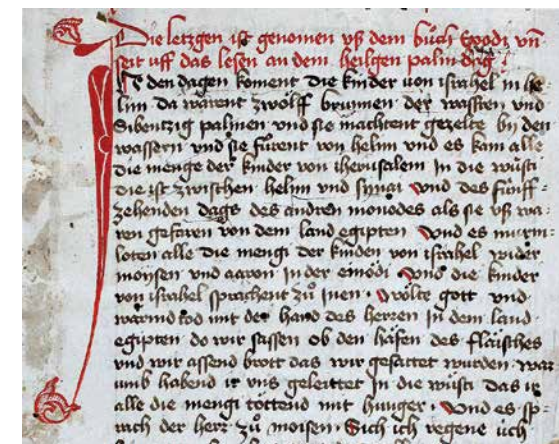 Die letzgen ist genomen vß dem bůch Exodi vn̄
seit uff das lesen an dem heilgen palm dag
In den dagen koment Die kinder von israhel in he-
lim da warent zwölff brunnen der wassren vnd
Sibentzig palmen vnd sie machtent gezelte by den
wassern vnd sie fůrent von helim vnd es kam alle
die menge der kinder von iherusalem In die wůsti
die ist zwischen helim vnd synai Vnd des fůnff-
zehenden dags des andren monodes als sie vß wa-
ren gefaren von dem land egipten Vnd es murm-
loten alle die mengi der kinden von israhel wider
moysen vnd aaron In der einödi Vnd die kinder
von israhel sprachent zů inen Wölte gott vnd
wärind tod mit der hand des herzen In dem land
egipten do wir sassen ob den häfen des flaisches
vnd wir assend brott das wir gesattet wurden war
umb habend ir vns geleittet In die wůsti das ir
alle die mengi töttend mit hunger Vnd es sp-
rach der herr zů moisen Sich ich regene üch